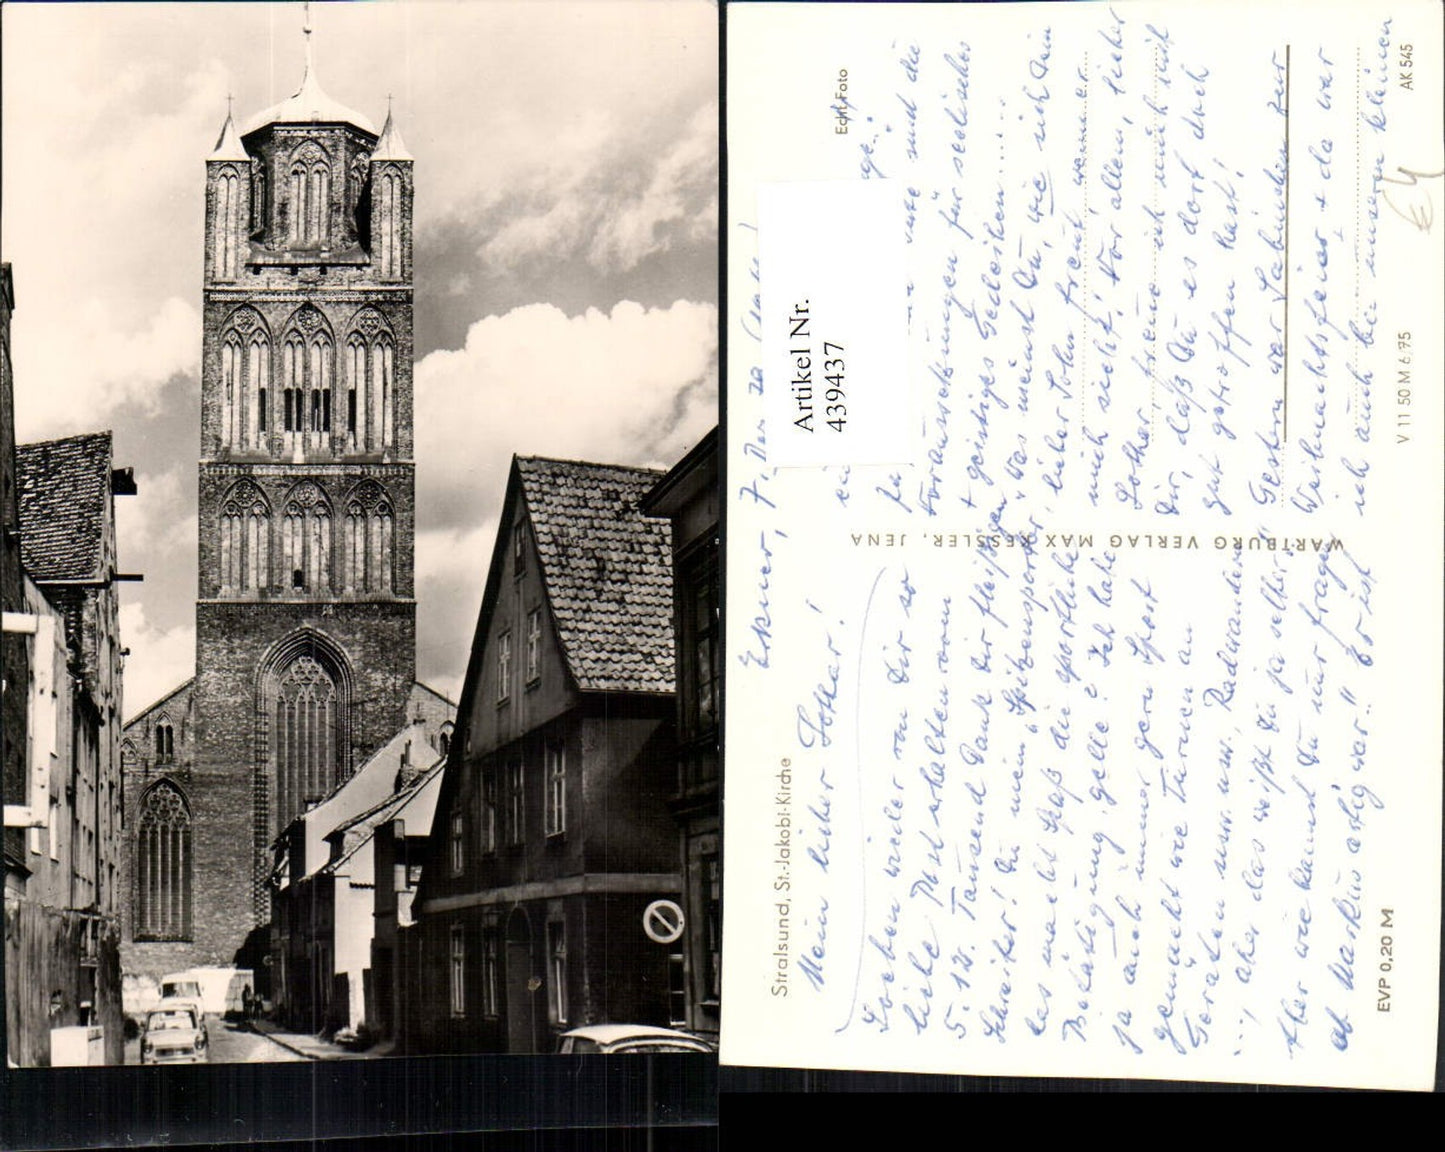 Stralsund, St.-Jakobi-Kirche
Mein lieber Lothar!
Soeben wieder von Dir so
liebe Post erhalten vom
5. 12. Tausend Dank Dir fleißigen
Schreiber! Du mein "Spitzensportler",
das macht Spaß die sportliche
Betätigung, gelle? Ich habe
ja auch immer gern Sport
gemacht wie Turnen an
Geräten usw. usw., Radwandern
...., aber das weißt Du ja selber!
Aber wie kannst Du nur fragen
ob Markus artig war.. Er ist
EVP 0,20 M
WARTBURG VERLAG MAX KESSLER, JENA
7. Dez.
Artikel Nr.
439437
Echt Foto
und die
Voraussetzungen für seelisches
+ geistiges Gedeihen.....
Was meinst Du, wie sich Dein
lieber Sohn freut, wenn er
mich sieht! Vor allem, lieber
Lothar, freue ich mich mit
Dir, daß Du es dort doch
gut getroffen hast!
Gestern war Sabinchen zur
Weihnachtsfeier + da war
ich auch bei unserm kleinen
V 11 50 M 6/75
AK 545